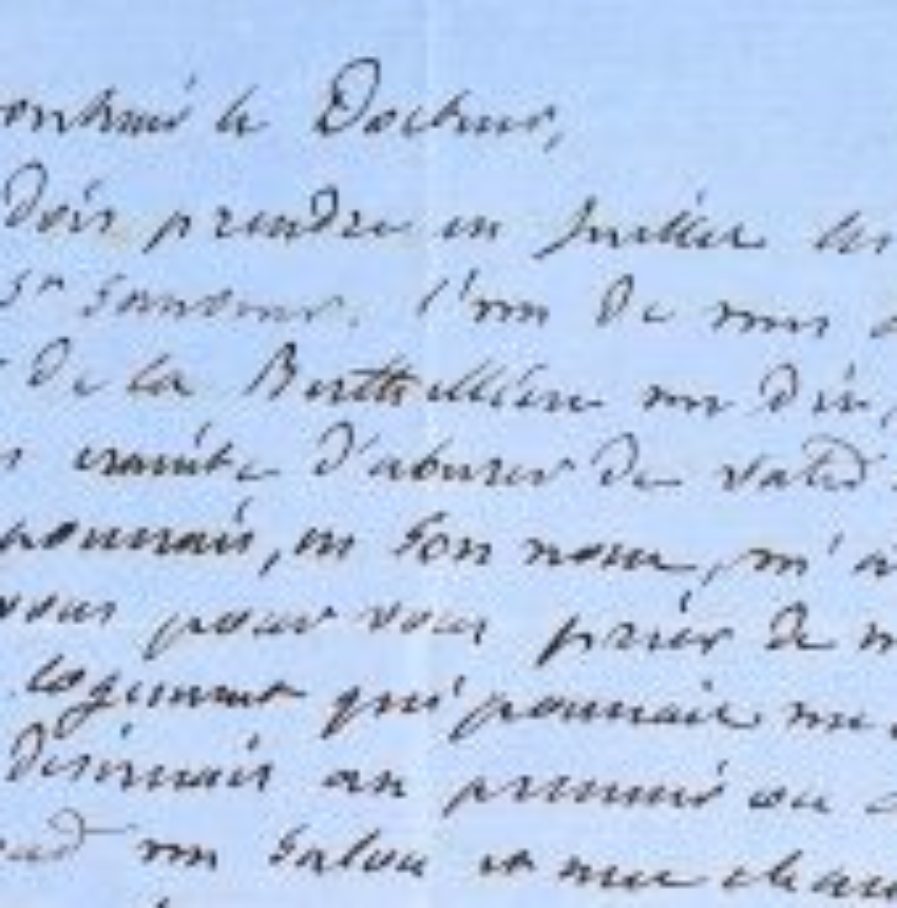 le Docteur,
Dois prendre en Juillet les
St Sauveur. l'un de mes
de la Berthellière me dit,
crainte d'abuser de
pourrais, en son nom, m'a
vous pour vous prier de
logement qui pourrait me
désirerais au premier ou
un salon et une cham